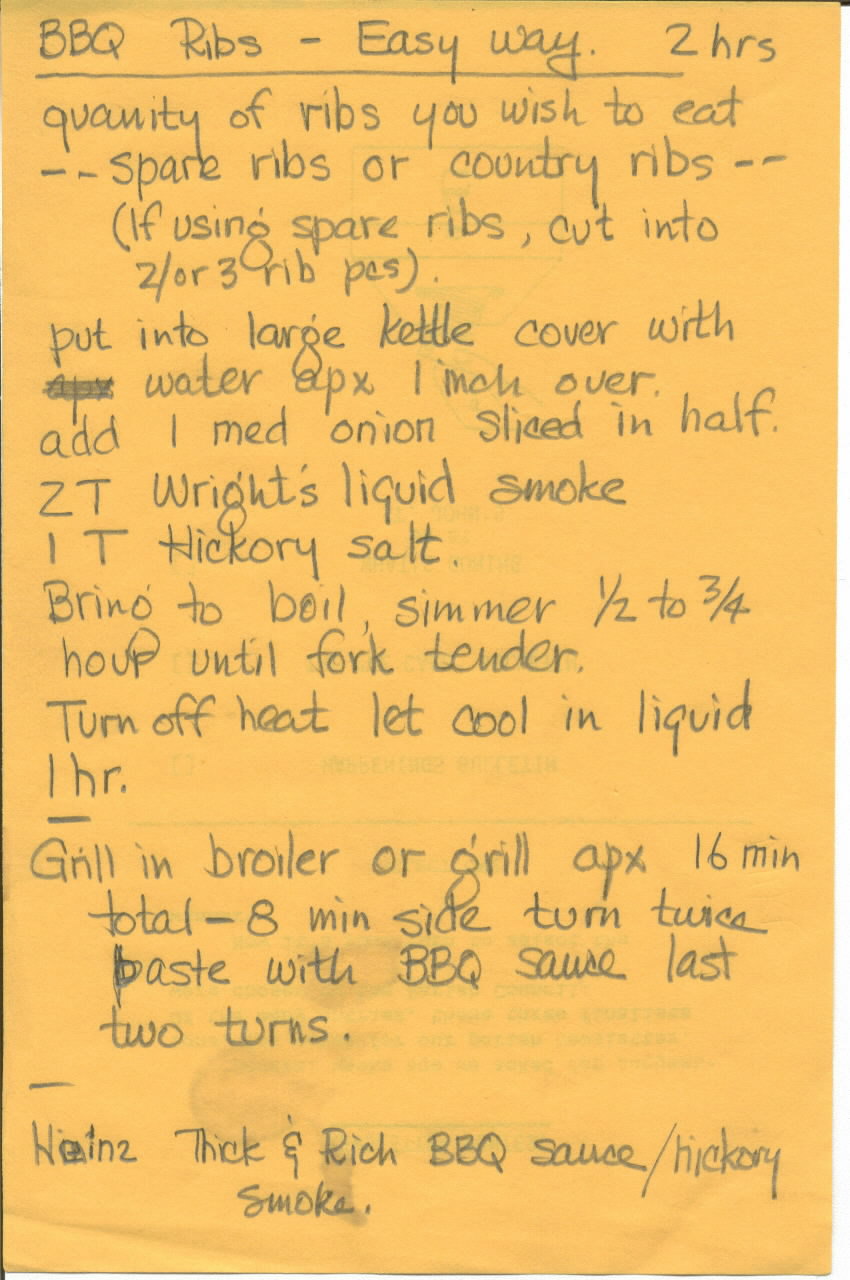 BBQ Ribs - Easy way. 2 hrs
quanity of ribs you wish to eat
-- spare ribs or country ribs --
(If using spare ribs, cut into
2/or 3 rib pcs).
put into large kettle cover with
apx water apx 1 inch over.
add 1 med onion sliced in half.
2T Wright's liquid smoke
1 T Hickory salt.
Bring to boil, simmer 1/2 to 3/4
hour until fork tender.
Turn off heat let cool in liquid
1 hr.
—
Grill in broiler or grill apx 16 min
total - 8 min side turn twice
baste with BBQ sauce last
two turns.
—
Heinz Thick & Rich BBQ sauce/hickory
smoke.